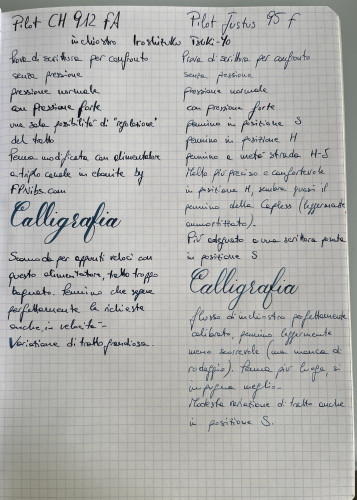 Pilot CH 912 FA
inchiostro Iroshizuku Tsuki-Yo
Prova di scrittura per confronto
senza pressione
pressione normale
con pressione forte
una sola possibilità di "regolazione"
del tratto
Penna modificata con alimentatore
a triplo canale in ebanite by
FPNibs.com
Calligrafia
Scomoda per appunti veloci con
questo alimentatore, tratto troppo
bagnato. Pennino che segue
perfettamente le richieste
anche in velocità.-
Variazione di tratto grandiosa.
Pilot Justus 95 F
Prova di scrittura per confronto
senza pressione
pressione normale
con pressione forte
pennino in posizione S
pennino in posizione H
pennino a metà strada H-S
Molto più preciso e confortevole
in posizione H, sembra quasi il
pennino della Capless (leggermente
ammortizzato).
Più adeguato a una scrittura posata
in posizione S
Calligrafia
flusso di inchiostro perfettamente
calibrato, pennino leggermente
meno scorrevole (ma manca di
rodaggio). Penna più lunga, si
impugna meglio.-
Modesta variazione di tratto anche
in posizione S.